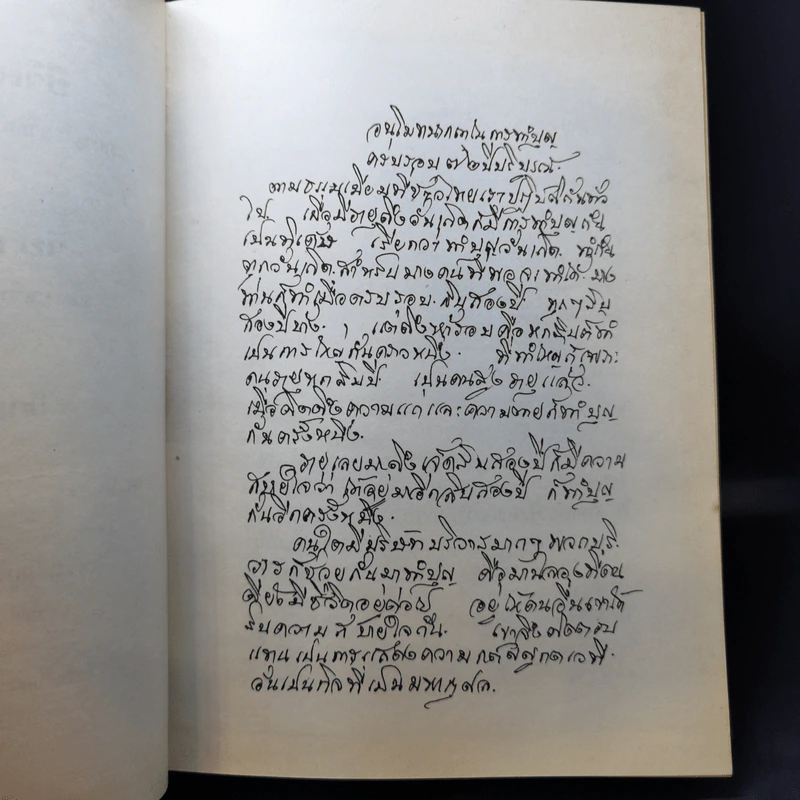 อนุโมทนกถาในการทำบุญ
ครบรอบ ๗๒ ปีบริบูรณ์.
ตามธรรมเนียมที่ชาวไทยเราปฏิบัติกันทั่ว
ไป เมื่อมีอายุถึงวันเกิดก็มีการทำบุญกัน
เป็นพิเศษ เรียกว่าทำบุญวันเกิด. ทำกัน
ทุกวันเกิด. สำหรับบางคนที่พอจะทำได้. บาง
ท่านก็ทำเมื่อครบรอบ. สิบสองปี ทุกๆสิบ
สองปีบ้าง. แต่ถึงห้ารอบคือหกสิบก็ทำ
เป็นการใหญ่กันคราวหนึ่ง. ที่ทำใหญ่ก็เพราะ
คนอายุหกสิบปี เป็นคนสูงอายุแล้ว.
เมื่อคิดถึงความแก่และความตายก็ทำบุญ
กันครั้งหนึ่ง.
อายุเลยมาถึงเจ็ดสิบสองปีก็มีความ
สบายใจว่า ได้อยู่มาอีกสิบสองปี ก็ทำบุญ
กันอีกครั้งหนึ่ง.
คนใดมีบริษัทบริวารมากๆ พวกบริ.
วารก็ช่วยกันมาทำบุญ คือมาฉลองที่คน
มีชีวิตอยู่ต่อไป อยู่ให้คนอื่นเขาได้
รับความสบายใจกัน. เขาจึงคิดตอบ
แทนเป็นการแสดงความกตัญญูกตเวที
อันเป็นกิจที่เป็นมหากุศล.